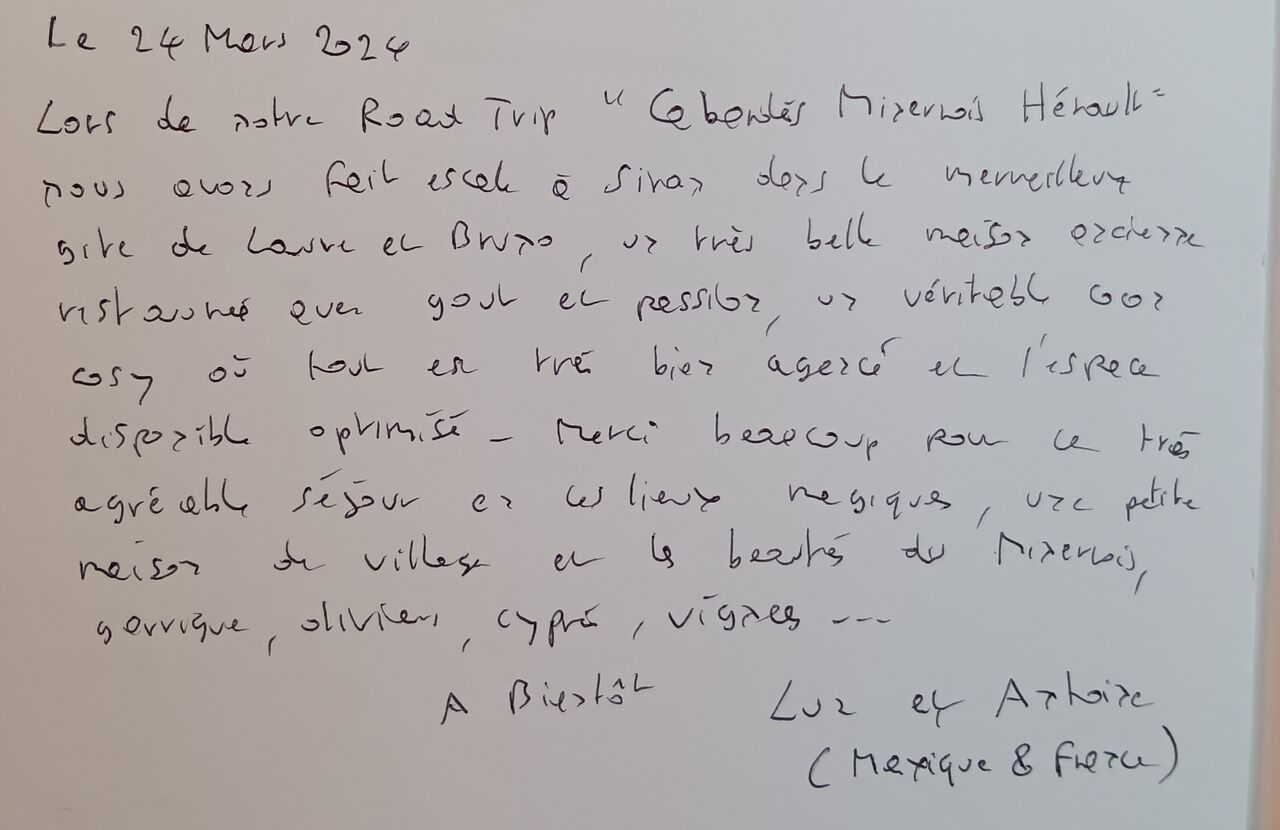 Le 24 Mars 2024
Lors de notre Road Trip "Cabardès Minervois Hérault"
nous avons fait escale à Siran dans le merveilleux
gite de Laure et Bruno, un très belle maison ancienne
restaurée avec gout et passion, un véritable coon
cosy où tout est très bien agencé et l'espace
disponible optimisé - Merci beaucoup pour ce très
agréable séjour en ces lieux magiques, une petite
maison de village et les beautés du Minervois,
garrigue, oliviers, cyprès, vignes ---
A Bientôt Luz et Antoine
(Mexique & France)